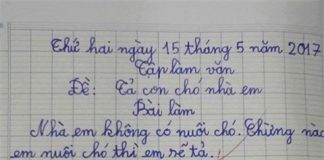 Thứ hai ngày 15 tháng 5 năm 2017
Tập làm văn
Đề: Tả con chó nhà em
Bài làm
Nhà em không có nuôi chó. Chừng nào
em nuôi chó thì em sẽ tả.